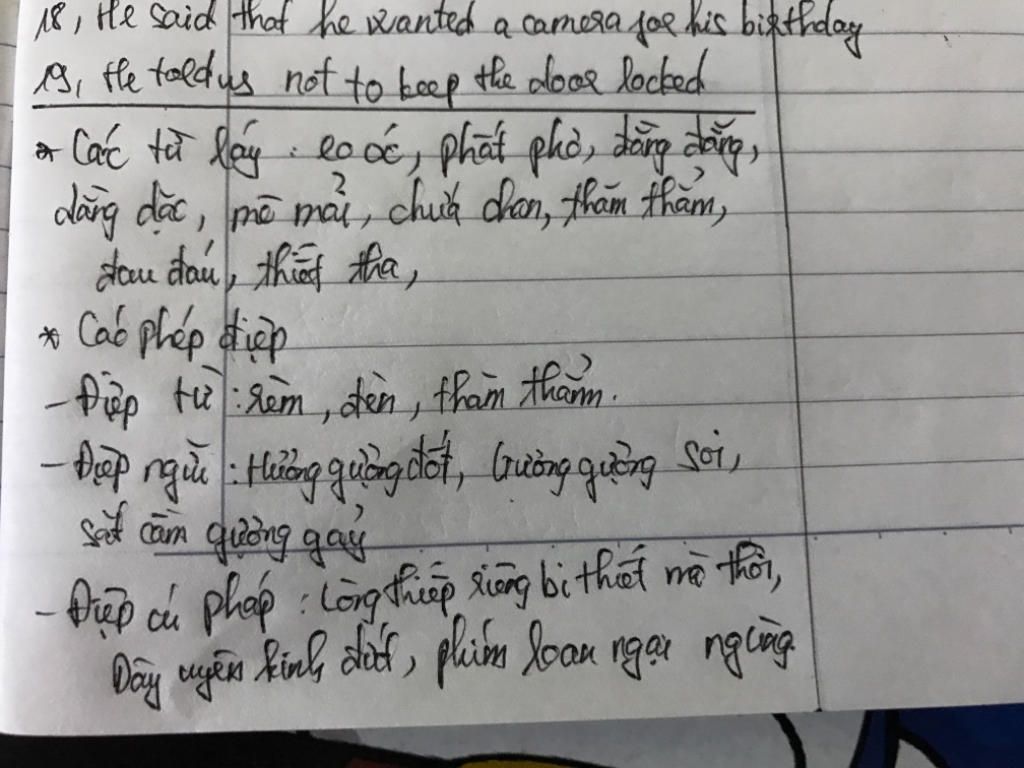 18, He said that he wanted a camera for his birthday
19, He told us not to keep the door locked
* Các từ láy : eo óc, phất phở, dằng dẵng,
dằng dặc, mê mải, chứa chan, thăm thẳm,
đau đáu, thiết tha,
* Các phép điệp
- Điệp từ : rèm, đèn, thăm thẳm.
- Điệp ngữ : Hương gượng đốt, Gương gượng soi,
sắt cầm gượng gảy
- Điệp cú pháp : Lòng thiếp riêng bi thiết mà thôi,
Dây uyên kinh đứt, phím loan ngại ngùng